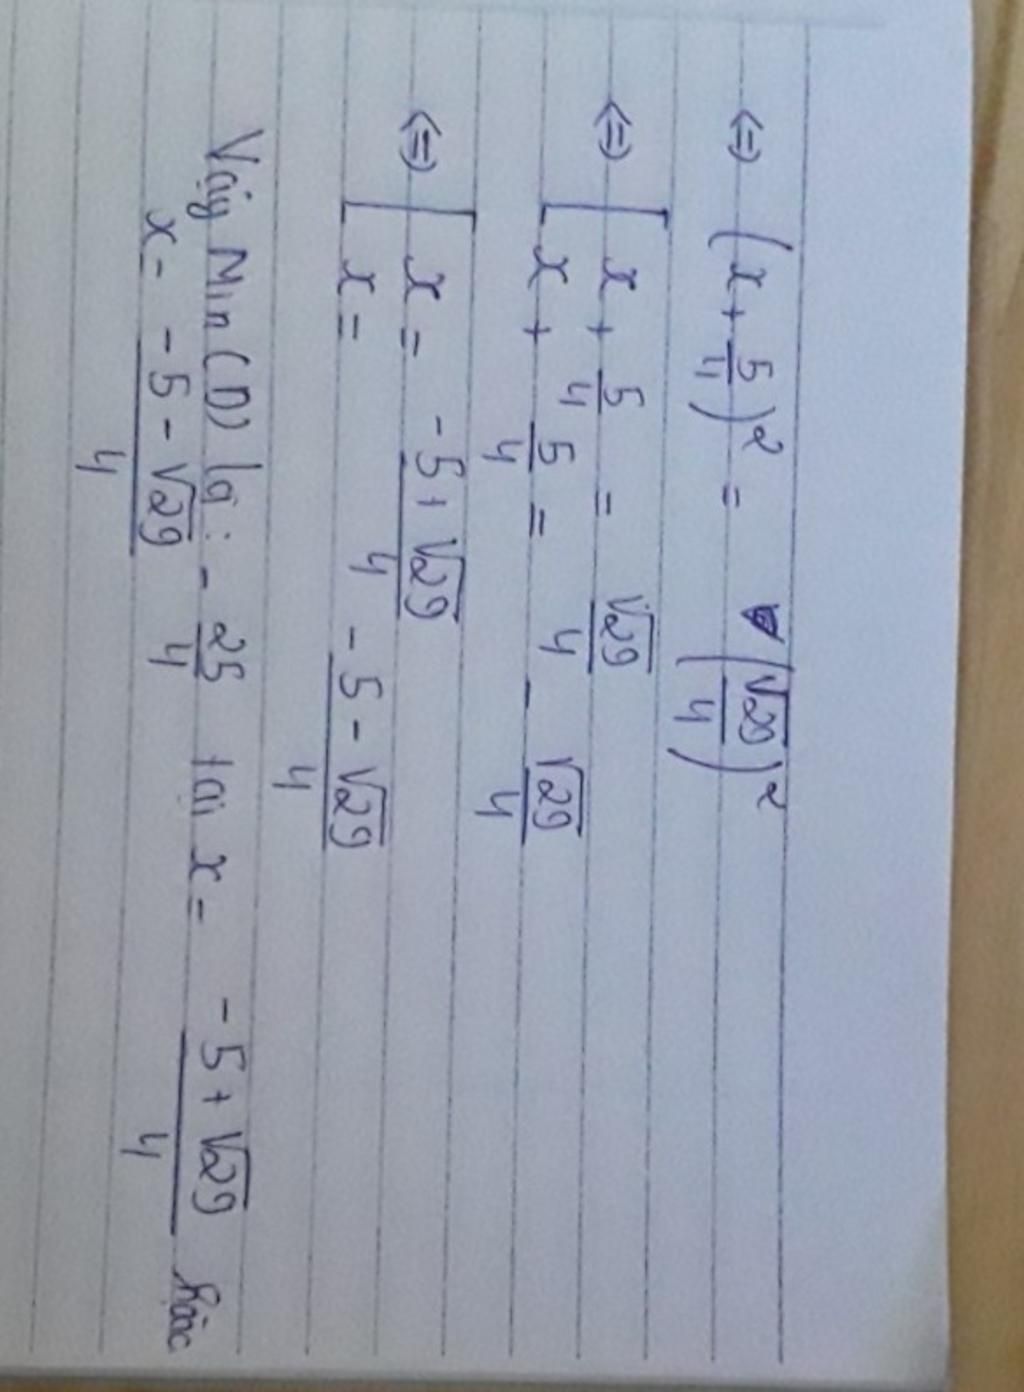 ⇔ (x + 5/4)² = (√29/4)²
⇔ [ x + 5/4 = √29/4
x + 5/4 = - √29/4
⇔ [ x = -5+√29/4
x = -5-√29/4
Vậy Min(D) là: - 25/4 tại x = -5+√29/4 hoặc
x = -5-√29/4